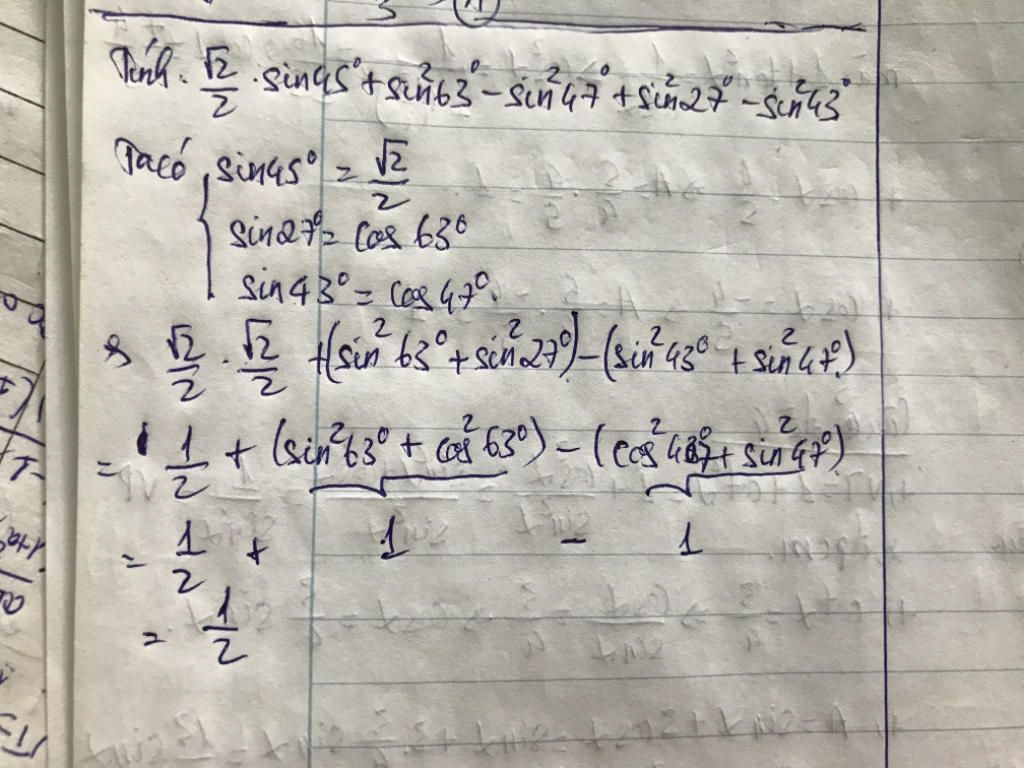 Tính. √2/2 . sin45° + sin²63° - sin²47° + sin²27° - sin²43°
Ta có { sin45° = √2/2
sin27° = cos 63°
sin43° = cos47°.
√2/2 . √2/2 + (sin²63° + sin²27°) - (sin²43° + sin²47°)
= 1/2 + (sin²63° + cos²63°) - (cos²47° + sin²47°)
= 1/2 + 1 - 1
= 1/2